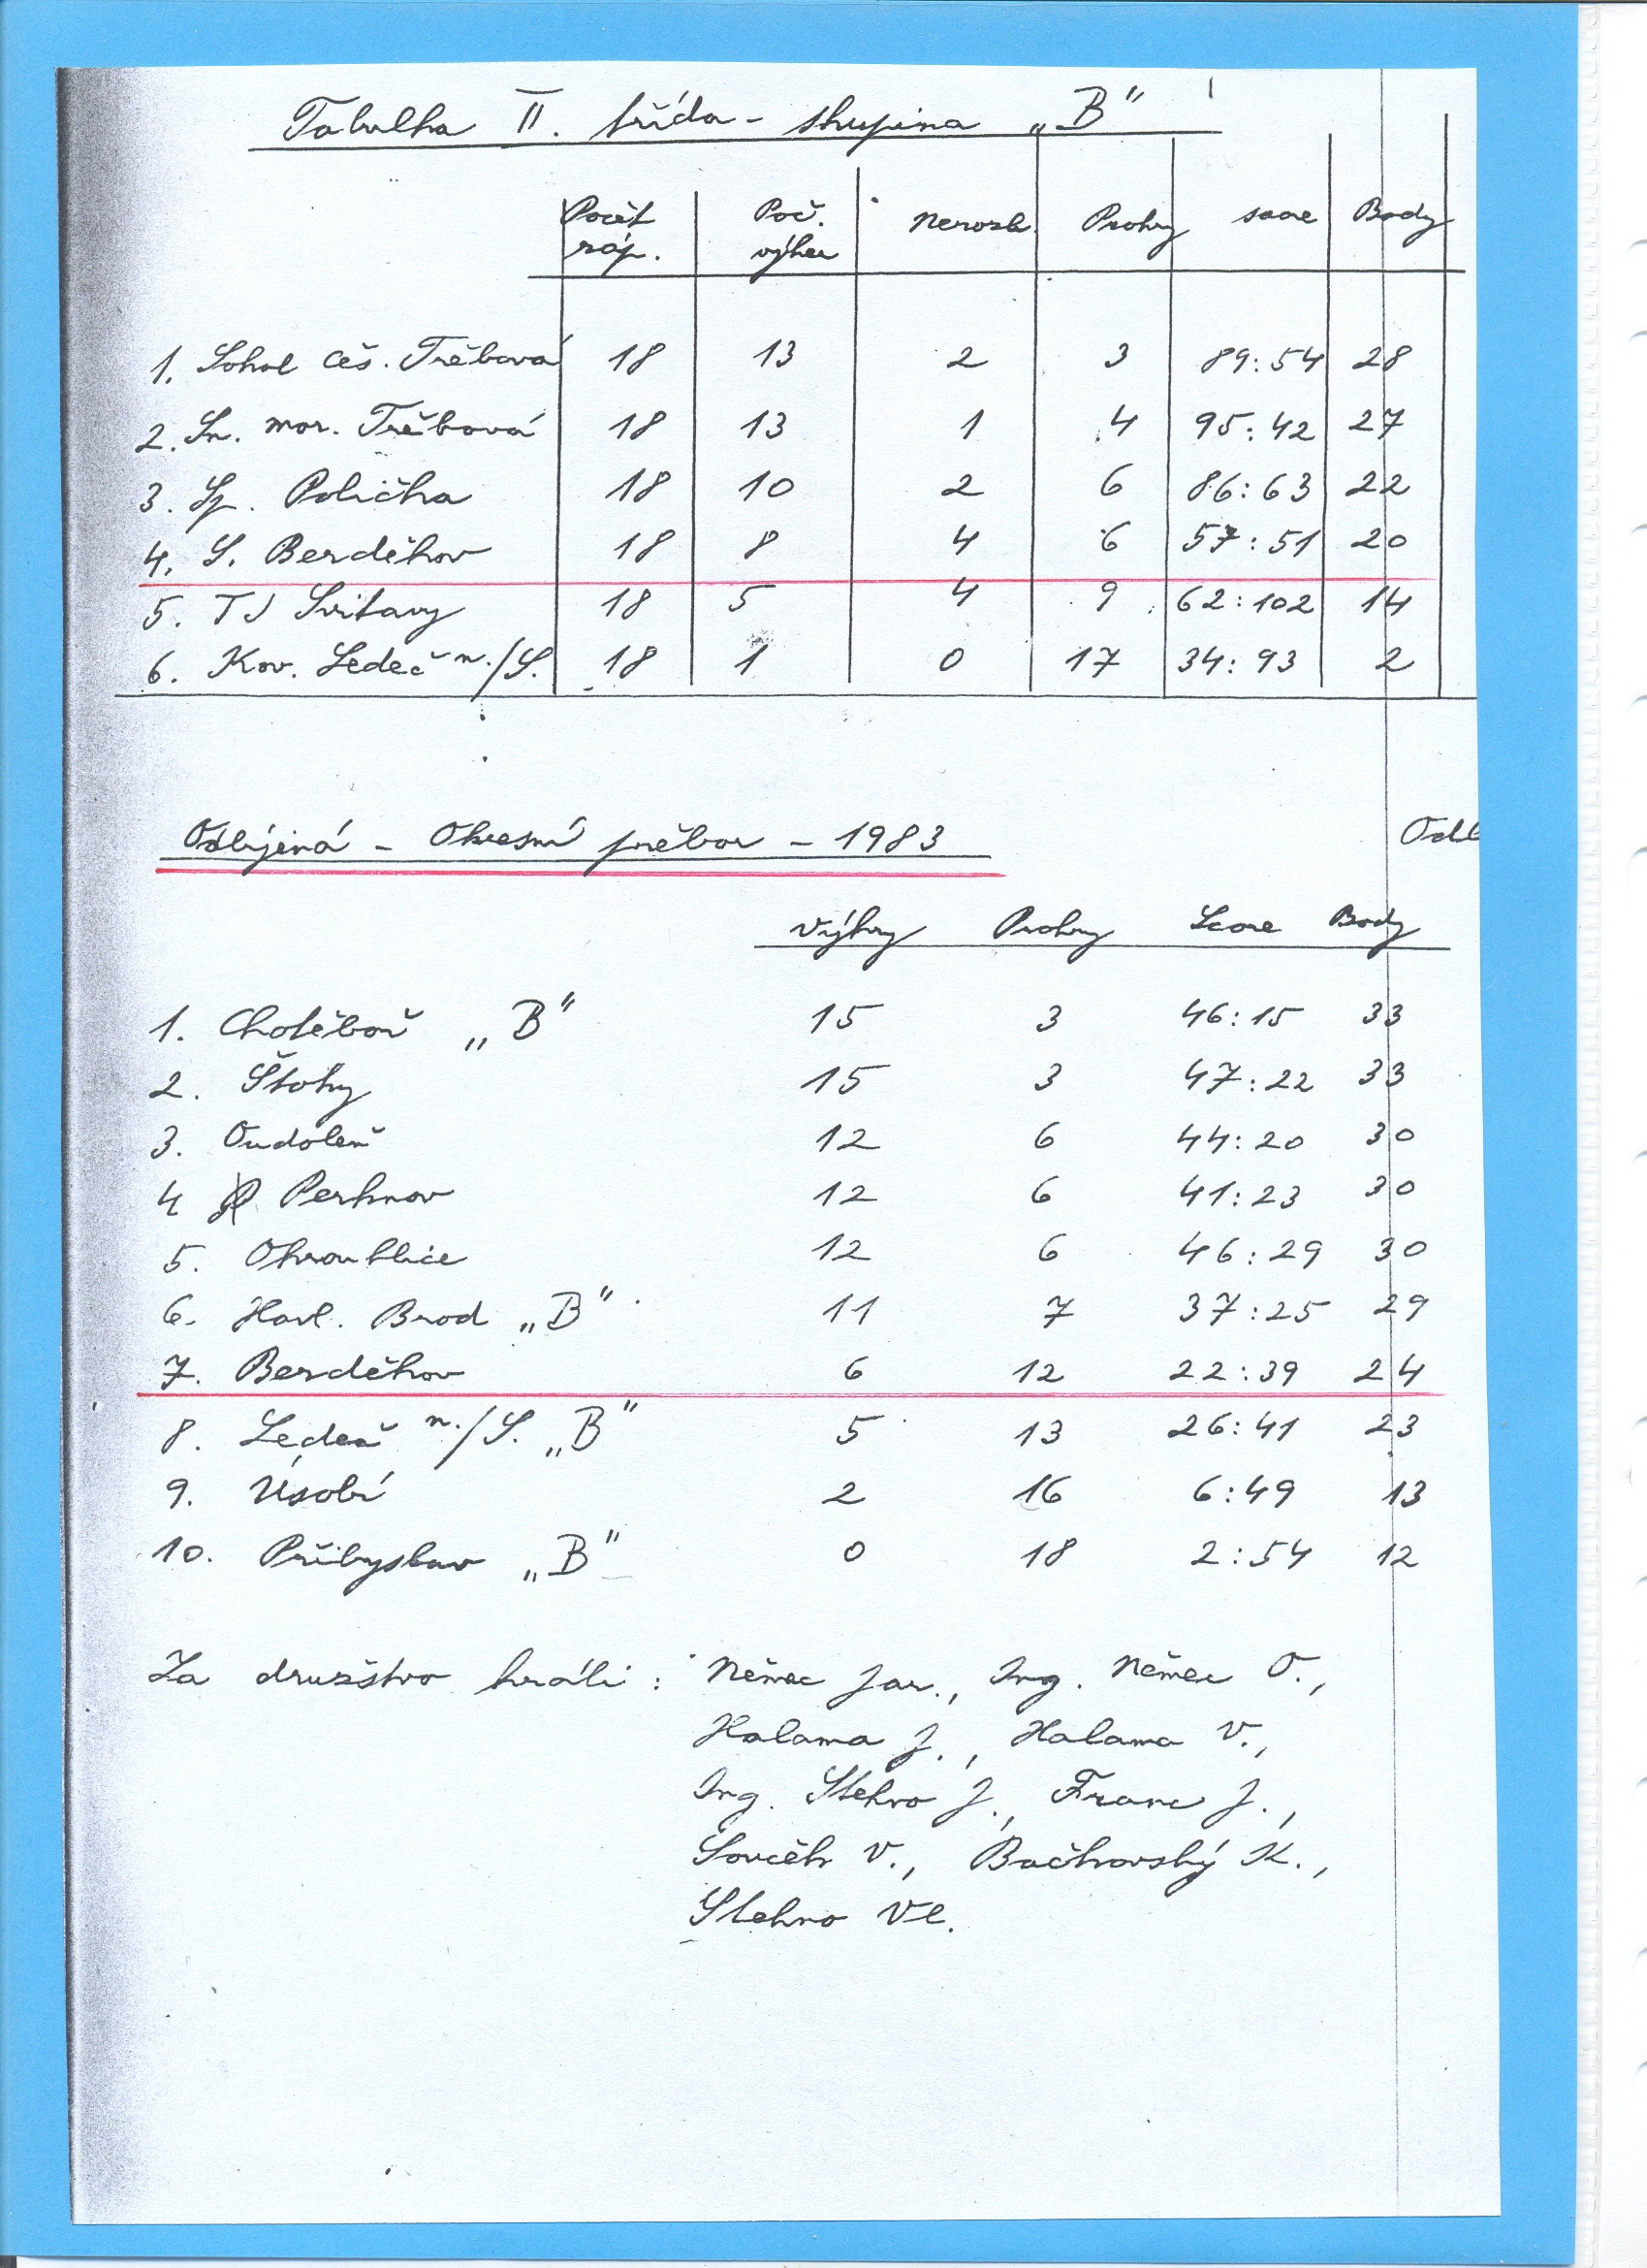 Tabulka II. třída - skupina „B"
Počet záp. Poč. výher Nerozh. Prohry score Body
1. Sokol Čes. Třebová 18 13 2 3 89:54 28
2. Sn. mor. Třebová 18 13 1 4 95:42 27
3. Sp. Polička 18 10 2 6 86:63 22
4. S. Berděkov 18 8 4 6 57:51 20
5. TJ Svitavy 18 5 4 9 62:102 14
6. Kov. Ledeč n./S. 18 1 0 17 34:93 2
Odbíjená - Okresní přebor - 1983
Odb
Výhry Prohry Score Body
1. Chotěboř „B" 15 3 46:15 33
2. Štoky 15 3 47:22 33
3. Oudoleň 12 6 44:20 30
4 Perknov 12 6 41:23 30
5. Okrouhlice 12 6 46:29 30
6. Havl. Brod „B" 11 7 37:25 29
7. Berděkov 6 12 22:39 24
8. Ledeč n./S. „B" 5 13 26:41 23
9. Úsobí 2 16 6:49 13
10. Přibyslav „B" 0 18 2:54 12
Za družstvo hráli: Němec Jar., Ing. Němec O.,
Halama J., Halama V.,
Ing. Stehno J., Franc J.,
Souček V., Bačkovský K.,
Stehno Vl.